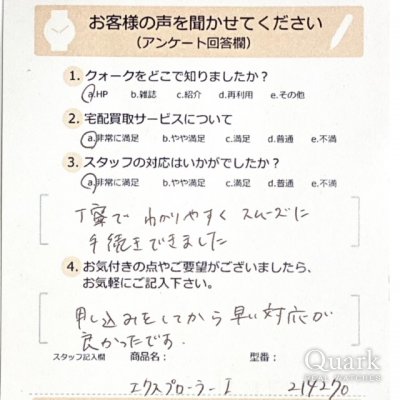 お客様の声を聞かせてください
(アンケート回答欄)
1. クォークをどこで知りましたか?
a.HP b.雑誌 c.紹介 d.再利用 e.その他
2. 宅配買取サービスについて
a.非常に満足 b.やや満足 c.満足 d.普通 e.不満
3. スタッフの対応はいかがでしたか?
a.非常に満足 b.やや満足 c.満足 d.普通 e.不満
丁寧で わかりやすく スムーズに
手続きできました
4. お気付きの点やご要望がございましたら、
お気軽にご記入下さい。
申し込みをしてから早い対応が
良かったです.
スタッフ記入欄 商品名: 型番:
エクスプローラーI 214270
Quark
REAL WATCHES